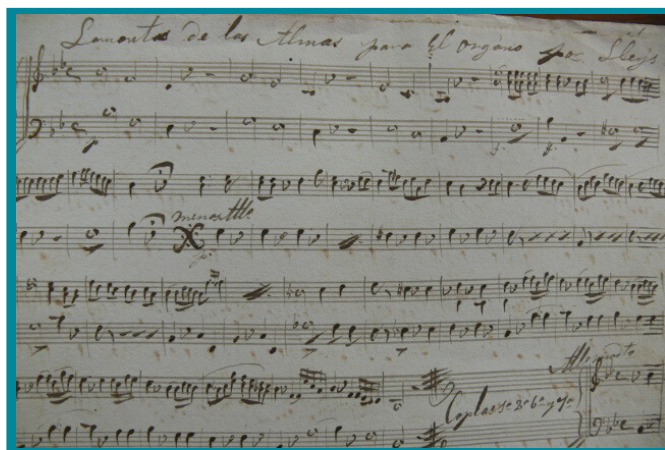 Lamentos de las Almas para El organo por Lleys
menos Allo
Allegreto
Coplas 1ª 3ª 6ª y 7ª